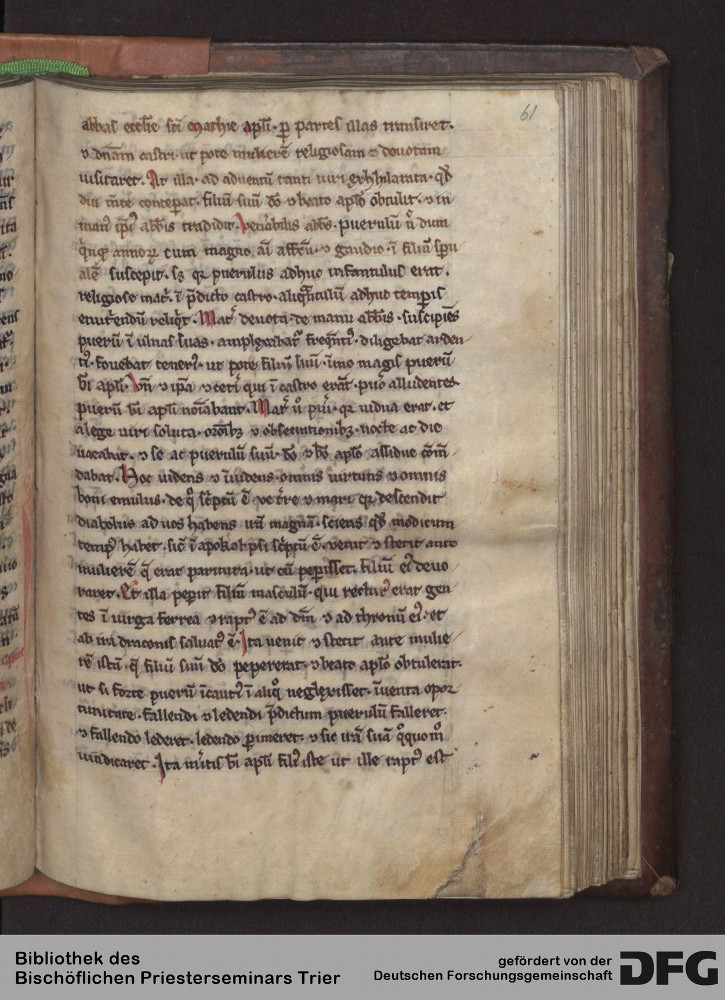 61
abbas eccłie sc̄i Mathie apłi · ꝑ partes illas transiret ·
⁊ dn̄am castri · ut pote mulierē religiosam ⁊ deuotam
uisitaret · At illa · ad aduentū tanti uiri exhilarata · qđ
diu m̄te conceperat · filiū suū dō ⁊ beato apło obtulit · ⁊ in
man ip̄i abb̄is tradidit · Uen̄abilis abb̄s · puerulū n̄ dum
annoꝝ cum magno affectū · ⁊ gaudio · ī filiū sp̄u
alē suscepit · sꝫ qꝛ puerulus adhuc infantulus erat ·
religiose mat̄ · ī p̄dicto castro · aliqntulū adhuc temp̄is
enutⁱendū reliqⁱt · Mat̄ deuota · de manu abb̄is · suscipiēs
puerū ī ulnas suas · amplexabat᷑ freqn̄tiꝰ · diligebat arden
tiꝰ · fouebat teneriꝰ · ut pote filiū suū · immo magis puerū
bī apłi · Vn̄ ⁊ ip̄a ⁊ cet̄i qui ī castro erāt · puo alludentes
puerū bī apłi noīabant · Mat̄ u̇ pu̇i · qꝛ uidua erat · et
a lege uiri soluta · oronibꝫ ⁊ obsecrationibꝫ · nocte ac die
uacabat · ⁊ se ac puerulū suū · dō ⁊ bō apło assidue cōm̄
dabat · Hoc uidens ⁊ īuidens · omnis uirtutis ⁊ omnis
boni emulus · de q̊ sc̄ptū ē ve t̄re ⁊ mari qꝛ descendit
diabolus ad uos habens irā magnā · sciens qđ modicum
tempꝰ habet · sic̄ ī apokalipsi sc̄ptū ē · venit ⁊ stetit ante
mulierē q̄ erat paritura · ut cū peperisset · filiū eiꝰ deuo
raret · Et illa peperit filiū masculū · qui recturꝰ erat gen
tes ī uirga ferrea ⁊ raptꝰ ē ad dm̄ ⁊ ad thronū eiꝰ · et
ab ira draconis saluatꝰ ē · Ita uenit ⁊ stetit ante mulie
rē istā · q̄ filiū suū dō pepererat · ⁊ beato apło obtulerat ·
ut si forte puerū īcautiꝰ ī aliq̊ neglexisset · īuenta opor
tunitate · fallendi ⁊ ledendi p̄dictum puerulū falleret ·
⁊ fallendo lederet · ledendo ꝑimeret · ⁊ sic irā suā q̊quo m̊
uindicaret · Ita m̄itis bī apłi filiꝰ iste ut ille raptꝰ est
Bibliothek des
Bischöflichen Priesterseminars Trier
gefördert von der
Deutschen Forschungsgemeinschaft
DFG